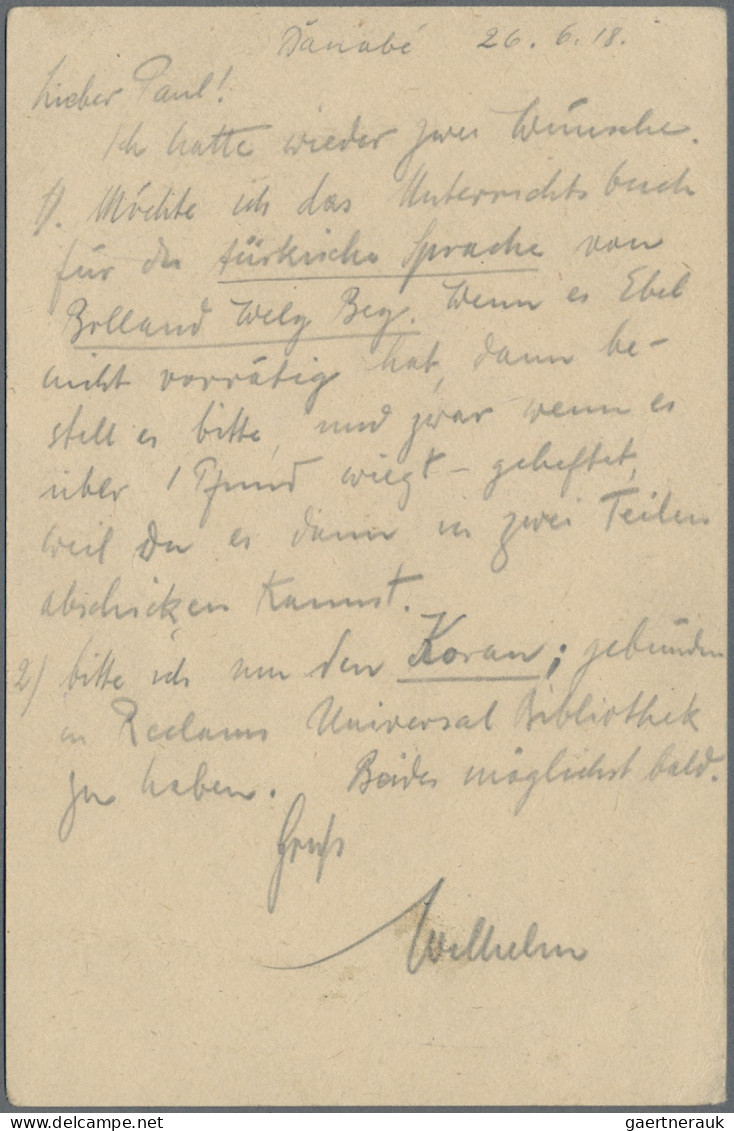 Dánabé 26.6.18.
Lieber Paul!
Ich hatte wieder zwei Wünsche.
1). Möchte ich das Unterrichtsbuch
für die türkische Sprache von
Bolland Welg Bey. Wenn es Ebel
nicht vorrätig hat, dann be-
stell es bitte, und zwar wenn es
über 1 Pfund wiegt - geheftet,
weil Du es dann in zwei Teilen
abschicken kannst.
2) bitte ich um den Koran; gebunden
in Reclams Universal Bibliothek
zu haben. Beides möglichst bald.
Gruß
Wilhelm
delcampe.net
gaertnerauk